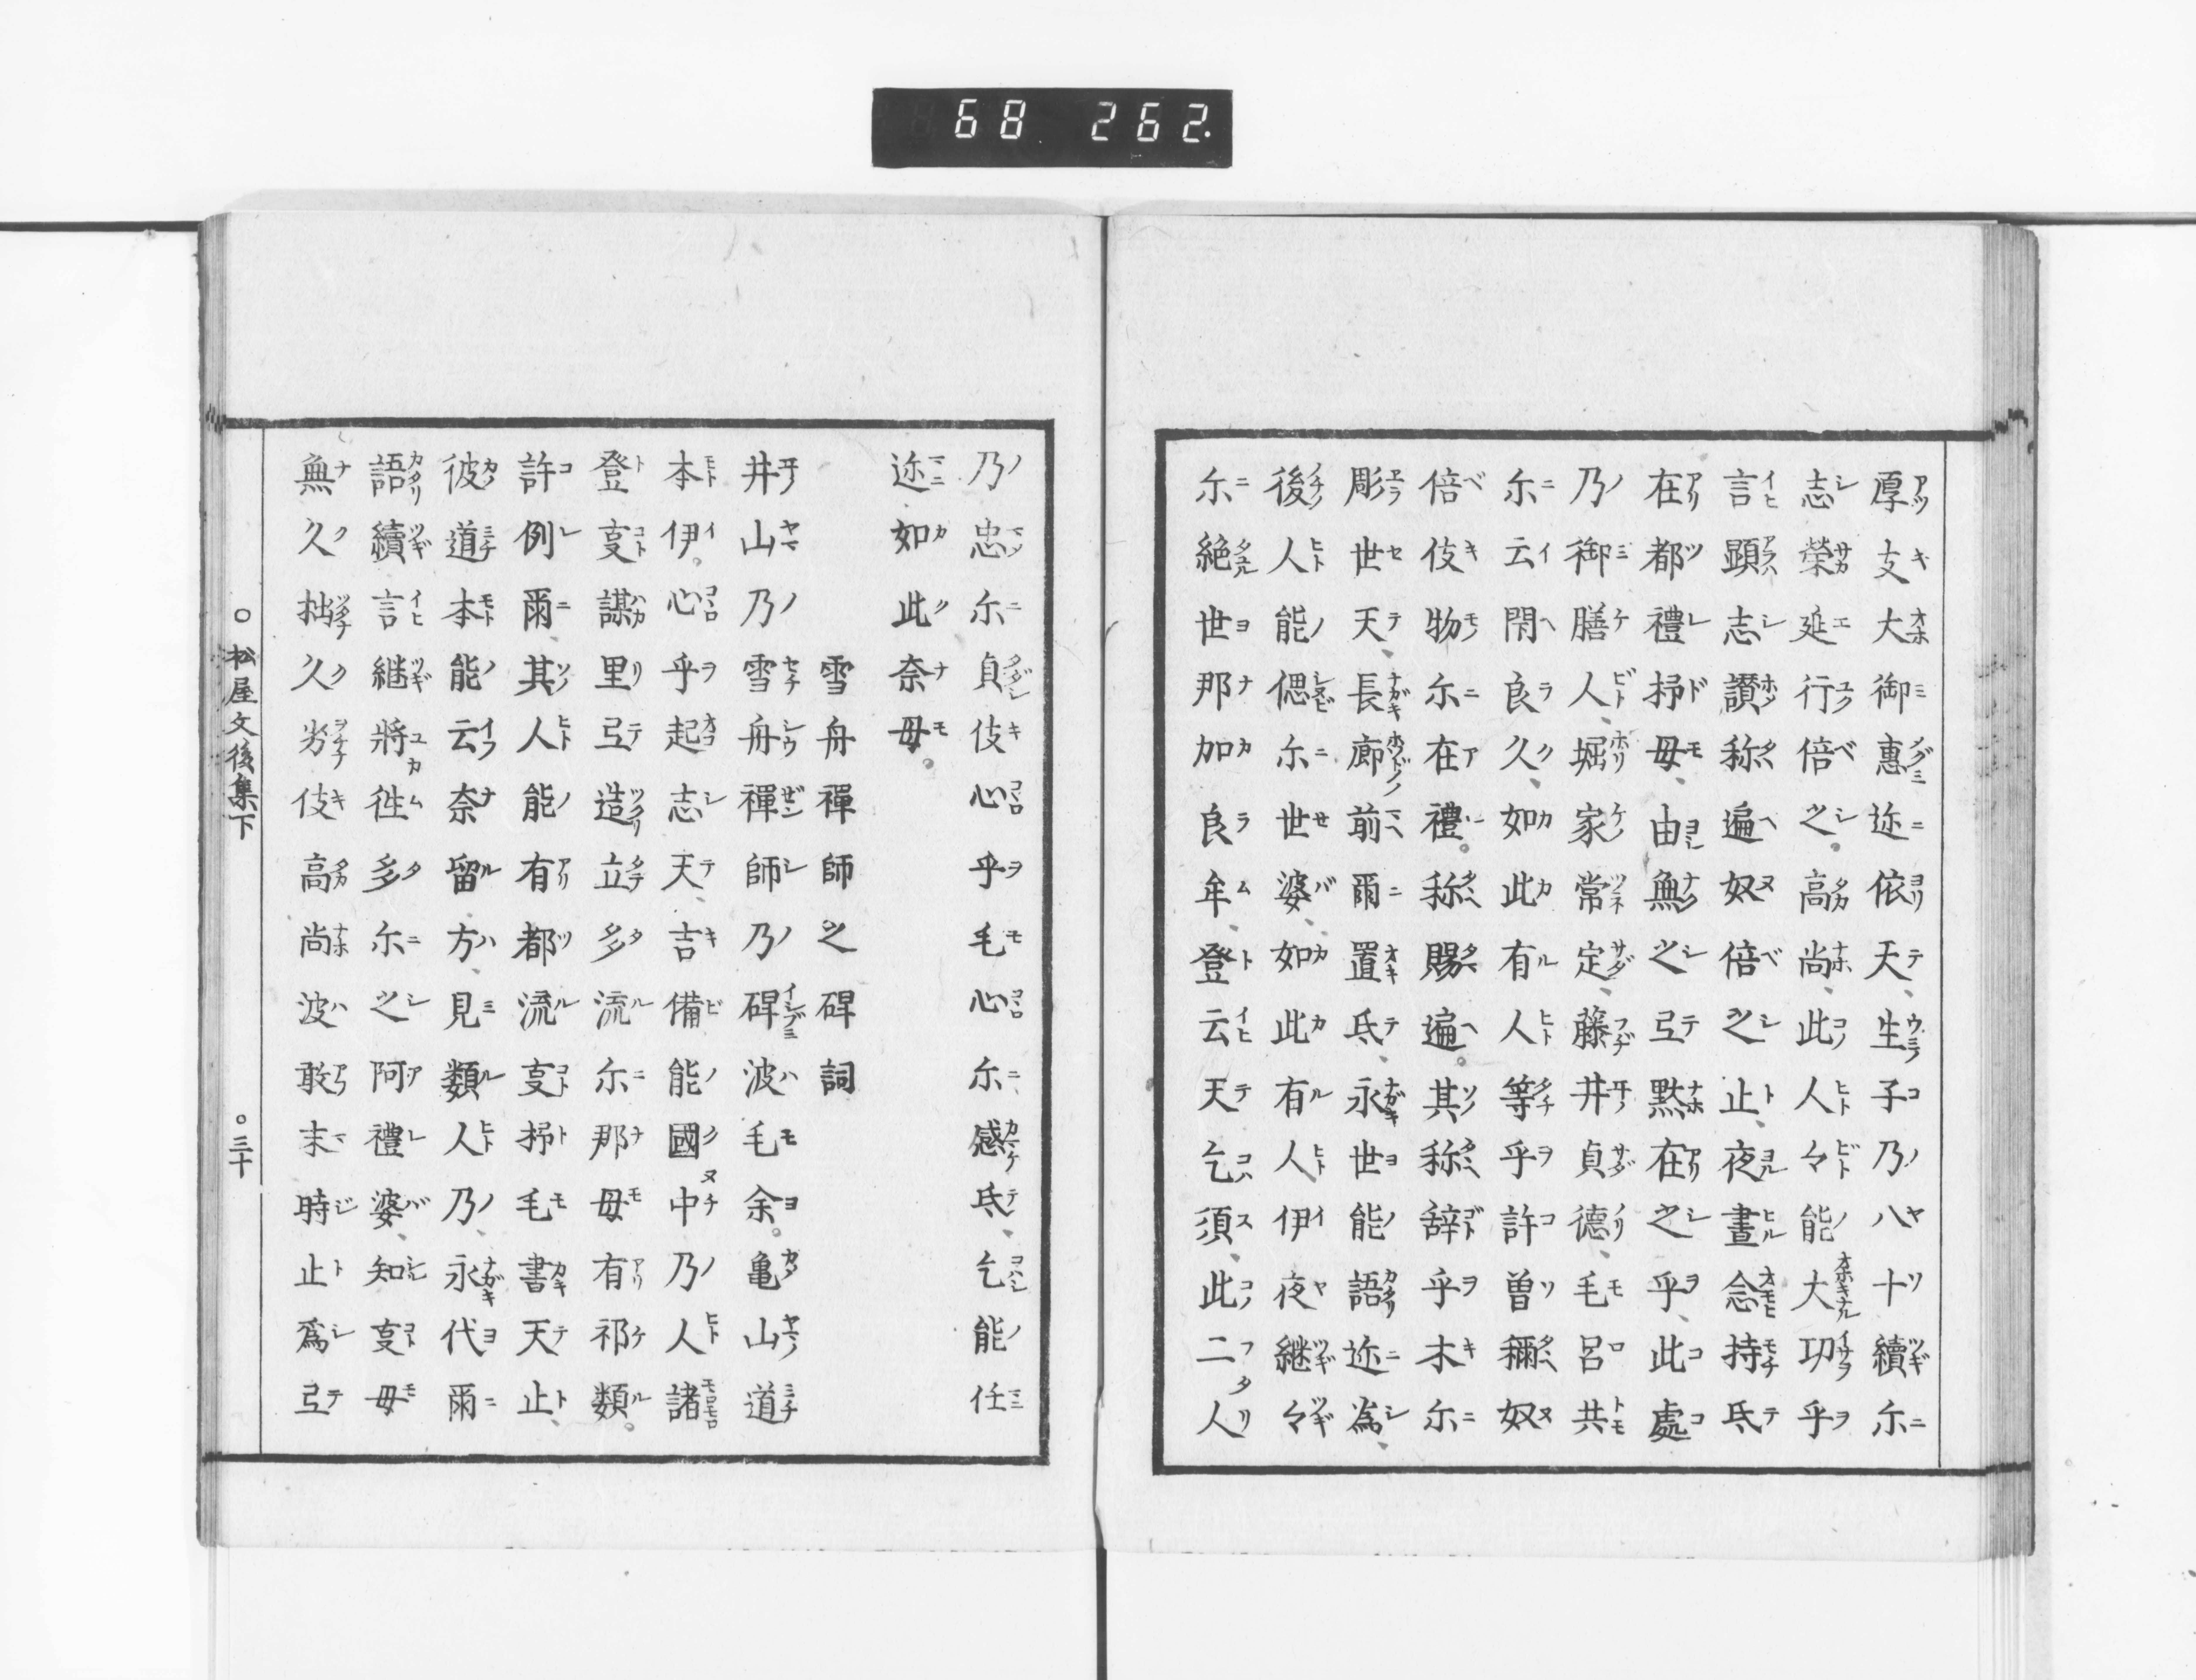 68 262.
厚支大御惠迩依天、生子乃八十續尓
志榮延行倍之。高尚、此人々能大功乎
言顕志讃称遍奴倍之止、夜晝念持氐
在都禮抒母、由無之弖黙在之乎、此處
乃御膳人、堀家常定、藤井貞徳、毛呂共
尓云閇良久、如此有人等乎許曽稱奴
倍伎物尓在禮。称賜遍。其称辞乎木尓
彫世天、長廊前爾置氐、永世能語迩為、
後人能偲尓世婆、如此有人伊夜継々
尓絶世那加良牟、登云天乞須、此二人
乃忠尓貞伎心乎毛心尓感氐、乞能任
迩如此奈母。
雪舟禪師之碑詞
井山乃雪舟禪師乃碑波毛余。亀山道
本伊。心乎起志天、吉備能國中乃人諸
登叓謀里弖造立多流尓那母有祁類。
許例爾、其人能有都流叓抒毛書天止、
彼道本能云奈留方、見類人乃、永代爾
語續言継將徃多尓之阿禮婆、知叓母
無久拙久劣伎高尚波敢末時止爲弖
○松屋文後集下 ○三十